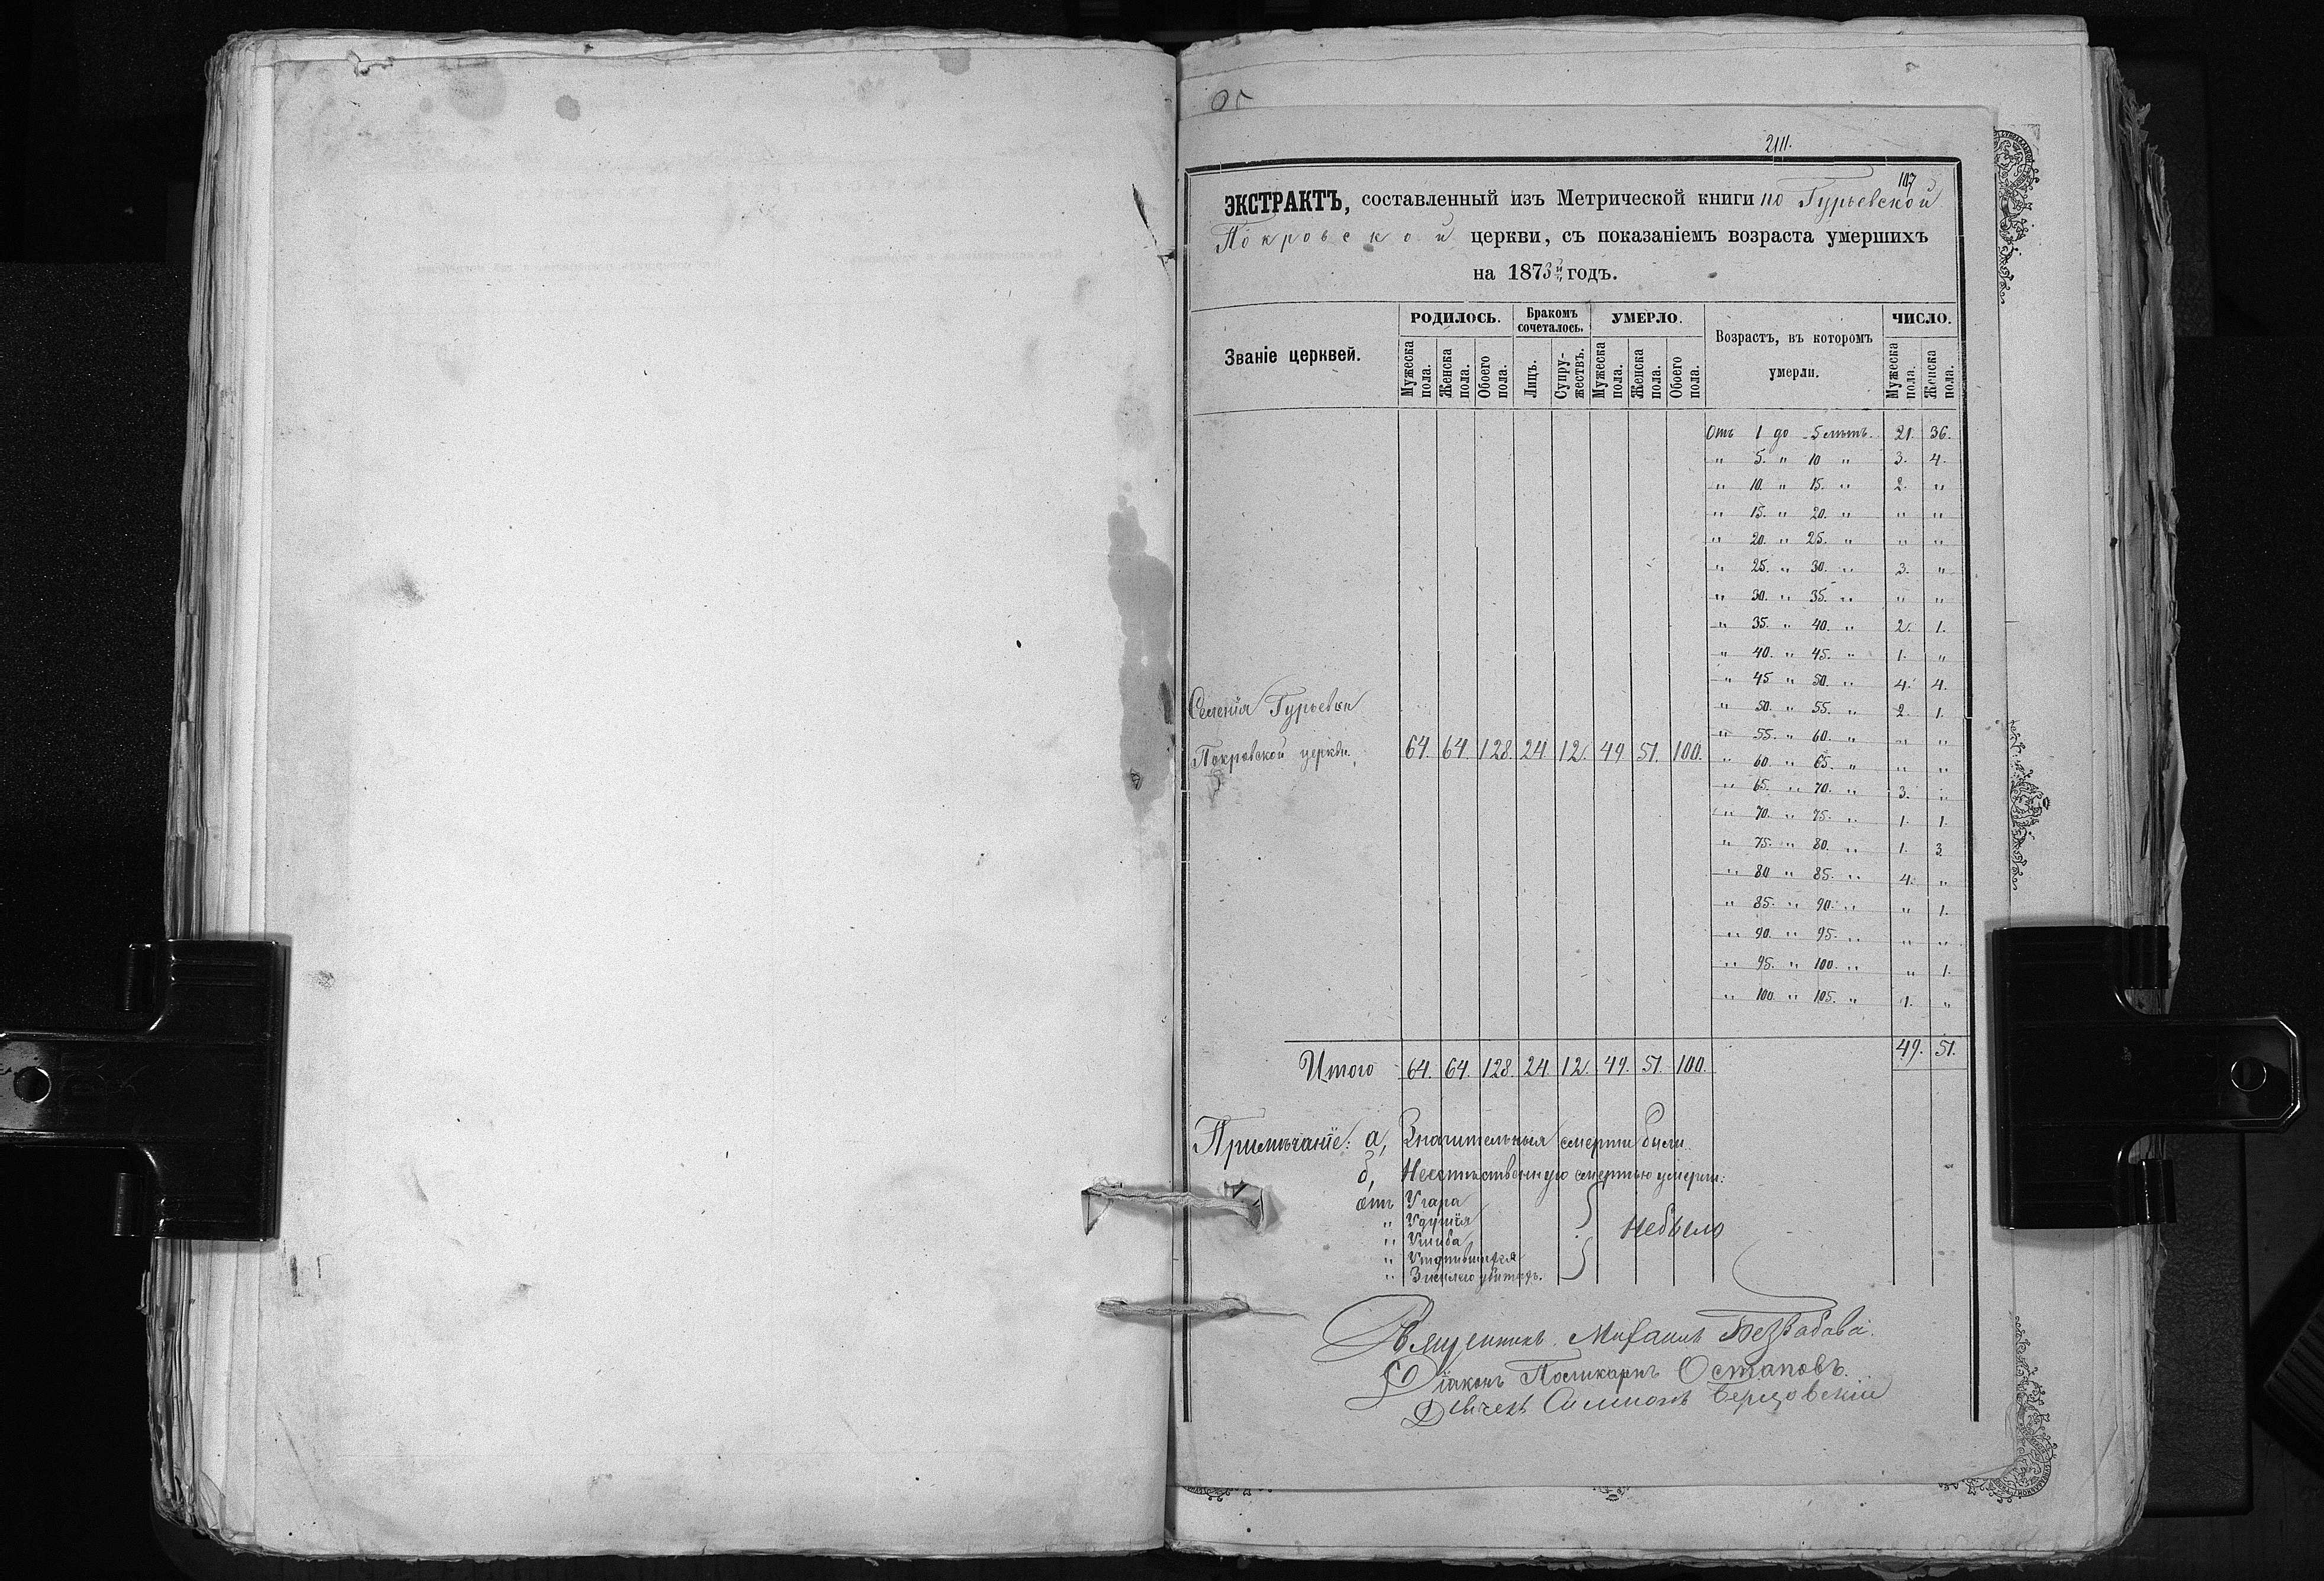 211.
107
ЭКСТРАКТЪ, составленный изъ Метрической книги по Гурьевской
Покровской церкви, съ показаніемъ возраста умершихъ
на 1873й годъ.
Званіе церквей.
РОДИЛОСЬ.
Мужеска пола.
Женска пола.
Обоего пола.
Бракомъ сочеталось.
Лицъ.
Супружествъ.
УМЕРЛО.
Мужеска пола.
Женска пола.
Обоего пола.
Возрастъ, въ которомъ
умерли.
ЧИСЛО.
Мужеска пола.
Женска пола.
Отъ 1 до 5 лѣтъ. 21. 36.
" 5. " 10 " 3. 4.
" 10. " 15. " 2. "
" 15. " 20. " " "
" 20. " 25. " " "
" 25. " 30. " 3. "
" 30. " 35. " " "
" 35. " 40. " 2. 1.
" 40. " 45. " 1. "
" 45 " 50. " 4. 4.
" 50. " 55. " 2. 1.
" 55. " 60. " " "
" 60 " 65. " " "
" 65. " 70. " 3. "
" 70. " 75. " 1. 1.
" 75. " 80. " 1. 3.
" 80 " 85. " 4. "
" 85. " 90. " " 1.
" 90. " 95. " " "
" 95. " 100. " " 1.
" 100. " 105. " 1. "
Селенія Гурьевки
Покровской церкви. 64. 64. 128. 24. 12. 49. 51. 100.
49. 51.
Итого 64. 64. 128. 24 12. 49. 51. 100.
Примѣчаніе: а, Значительныя смерти были
б, Неестественную смертью умерли:
отъ Угара
" Удушія
" Ушиба
"
"
Небыло
Священникъ Михаилъ
Діаконъ Поликарпъ Остаповъ.
Симеонъ